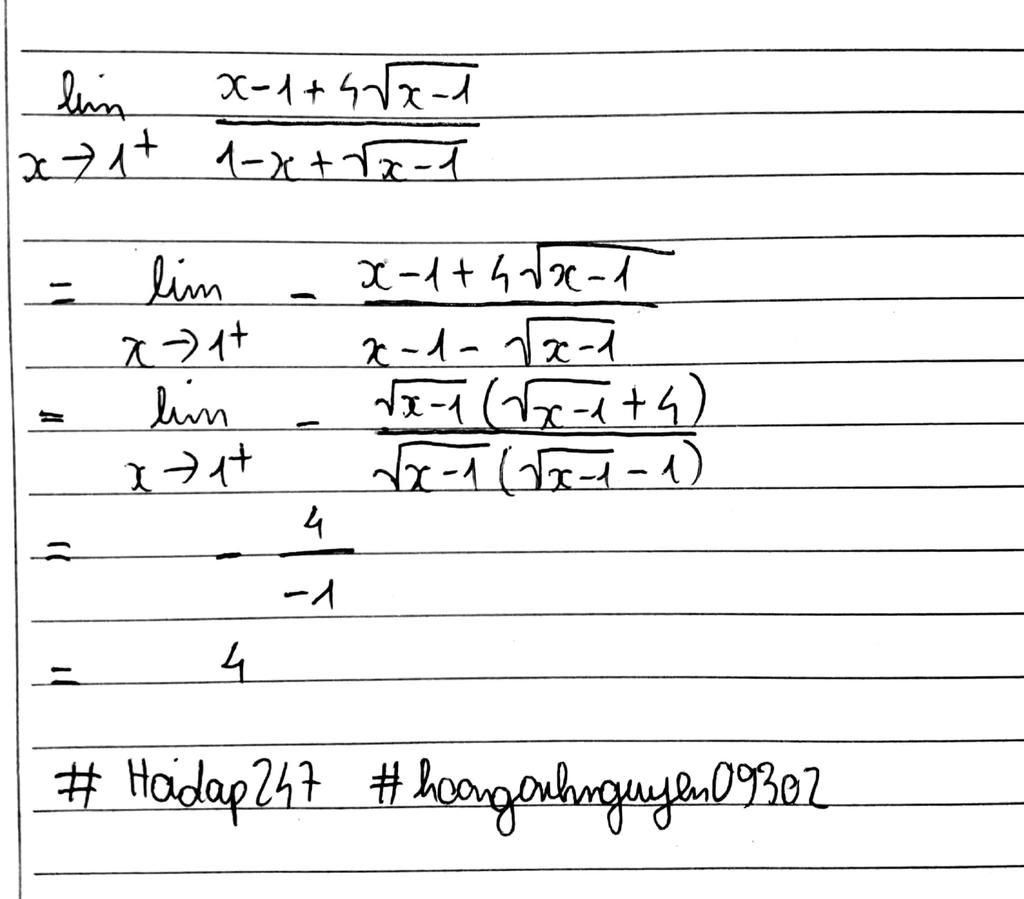 lim x→1⁺ (x-1+4√(x-1))/(1-x+√(x-1))
= lim x→1⁺ - (x-1+4√(x-1))/(x-1-√(x-1))
= lim x→1⁺ - (√(x-1)(√(x-1)+4))/(√(x-1)(√(x-1)-1))
= - 4/-1
= 4
# Hoidap247 # hoanganhnguyen09302